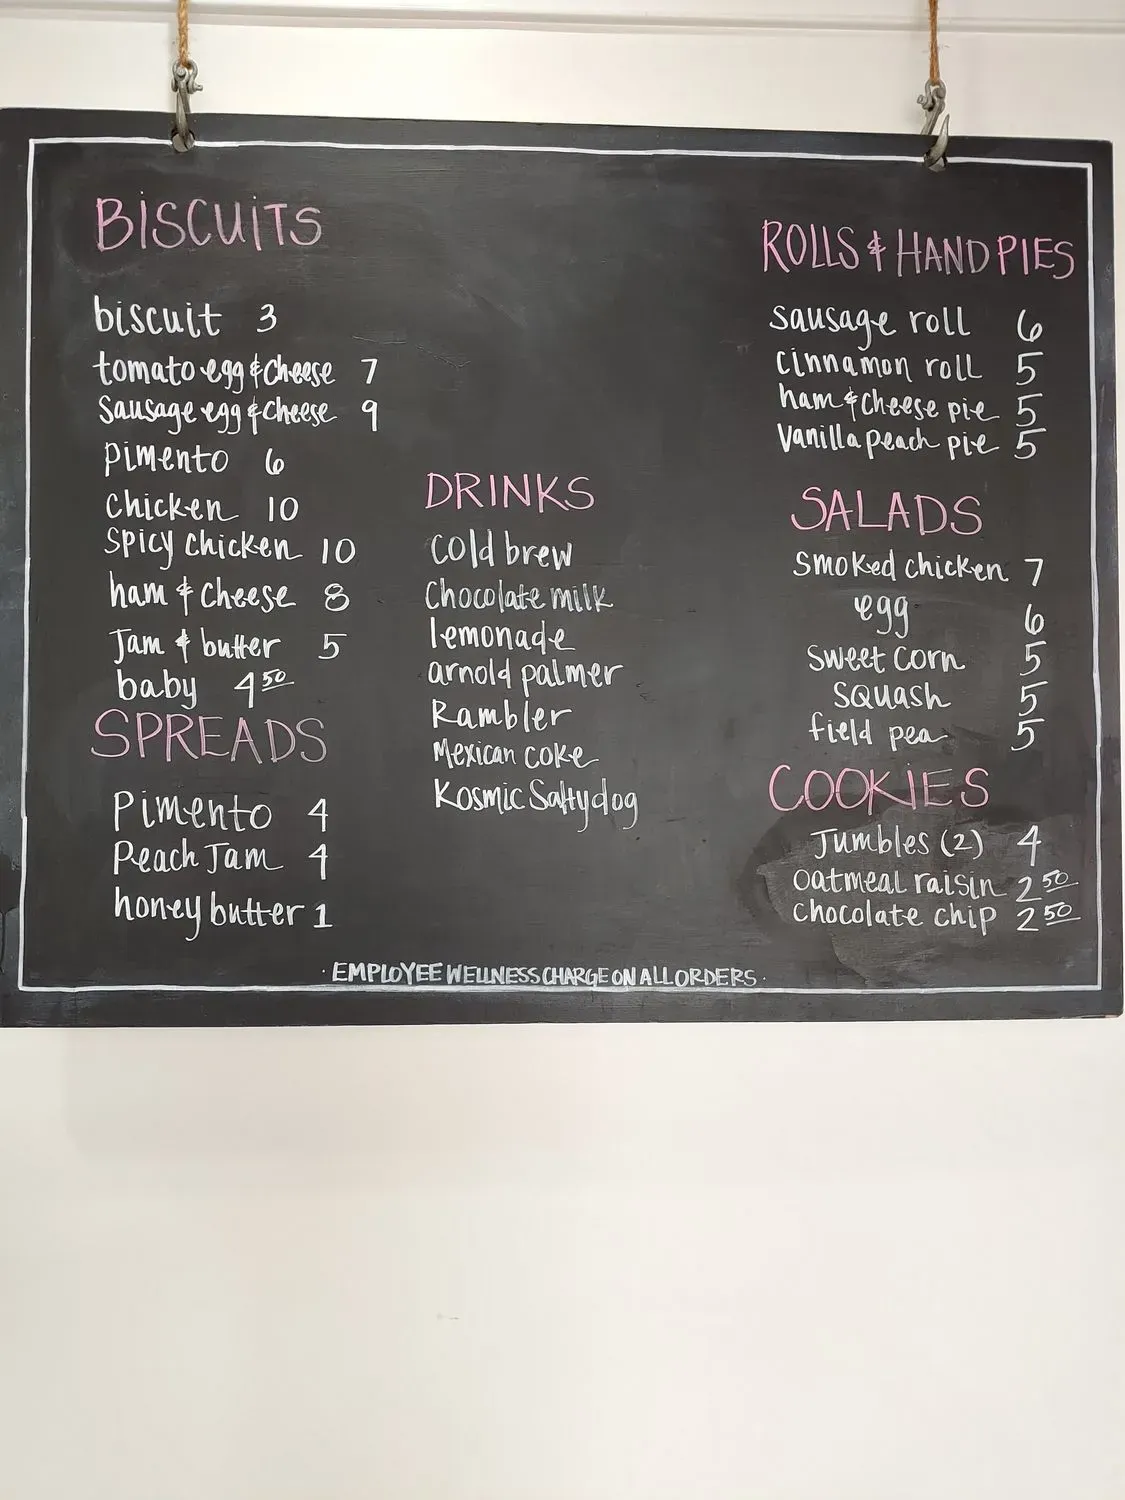 BISCUITS
biscuit 3
tomato egg & cheese 7
Sausage egg & cheese 9
pimento 6
chicken 10
spicy chicken 10
ham & cheese 8
Jam & butter 5
baby 4 50
SPREADS
Pimento 4
Peach Jam 4
honey butter 1
DRINKS
cold brew
Chocolate milk
lemonade
arnold palmer
Rambler
Mexican coke
Kosmic Saltydog
ROLLS & HAND PIES
sausage roll 6
cinnamon roll 5
ham & cheese pie 5
Vanilla peach pie 5
SALADS
smoked chicken 7
egg 6
sweet corn 5
squash 5
field pea 5
COOKIES
Jumbles (2) 4
oatmeal raisin 2 50
chocolate chip 2 50
· EMPLOYEE WELLNESS CHARGE ON ALL ORDERS ·